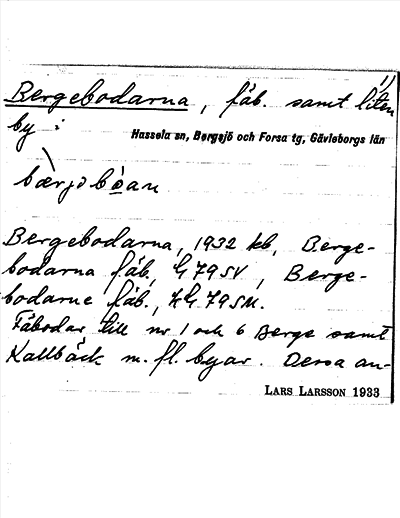 Bergebodarna, fäb. samt liten
by i
Hassela sn, Bergsjö och Forsa tg, Gävleborgs län
bærjəbòan
Bergebodarna, 1932 kb, Berge-
bodarna fäb, G 79 SV, Berge-
bodarne fäb., HG 79 SM.
Fäbodar till nr 1 och 6 Berge samt
Kallbäck m. fl. byar. Dessa an-
LARS LARSSON 1933